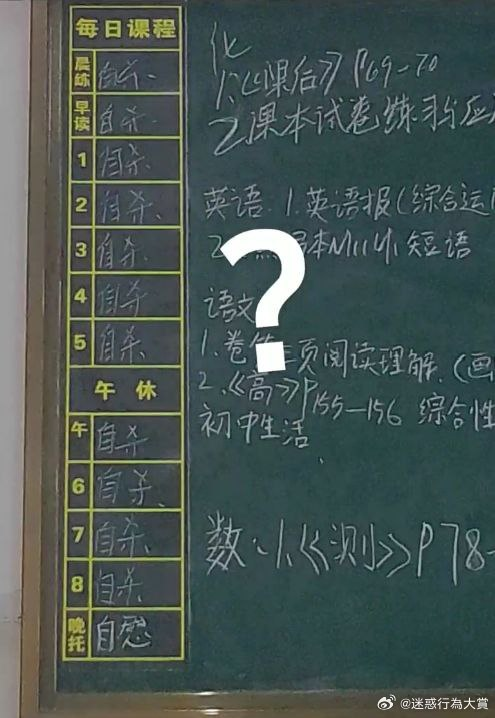 每日课程
晨练 自杀、
早读 自杀、
1 自杀、
2 自杀、
3 自杀、
4 自杀
5 自杀、
午休
午 自杀
6 自杀、
7 自杀、
8 自杀、
晚托 自
化
1.《课后》P69-70
2.课本试卷练习与应
英语 1.英语报(综合运
2 本M11U1 短语
语文
1.卷 三页阅读理解.(画
2.《高》P155-156 综合性
初中生活
数:1.《测》P78-
?
@迷惑行為大賞